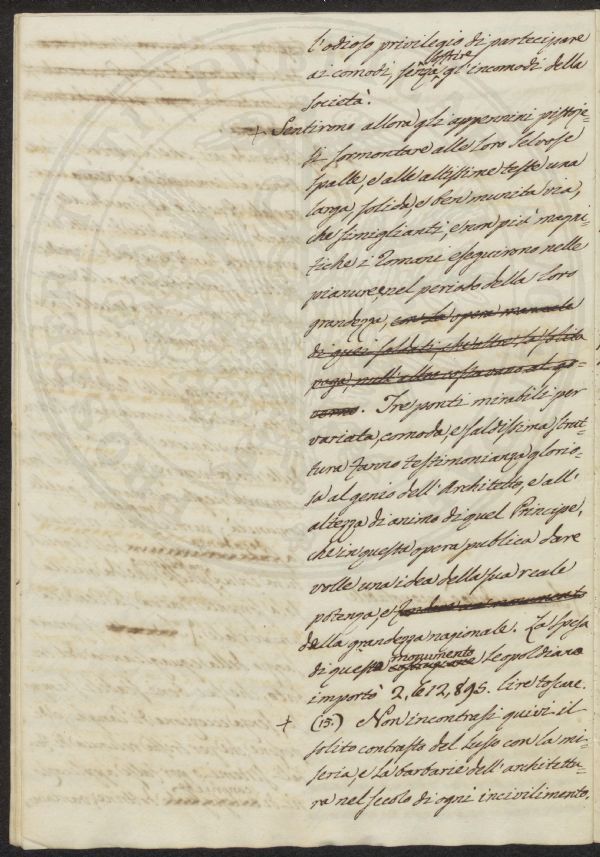 l'odioso privilegio di partecipare
soffrire
ai comodi, senza gl'incomodi della
società.
+ Sentirono allora gli appennini pistoje-
si sormontare alle loro selvose
spalle, e alle altissime teste una
larga, solida, e ben munita via,
che simiglianti, e non più magni-
fiche i Romani eseguirono nelle
pianure, nel periodo della loro
grandezza, con la opera manuale
di quei soldati, che oltre la solita
paga, null'altro costavano al go-
verno. Tre ponti mirabili per
variata, comoda, e saldissima strut-
tura fanno testimonianza glorio-
sa al genio dell'Architetto, e all'
altezza di animo di quel Principe,
che in questa opera publica dare
volle una idea della sua reale
potenza, e fondare un monumento
della grandezza nazionale. La spesa
monumento
di questo Leopoldiano
importò 2,612,895. lire toscane.
+ (15.) Non incontrasi quivi il
solito contrasto del lusso con la mi-
seria, e la barbarie dell'architettu-
ra nel secolo di ogni incivilimento.